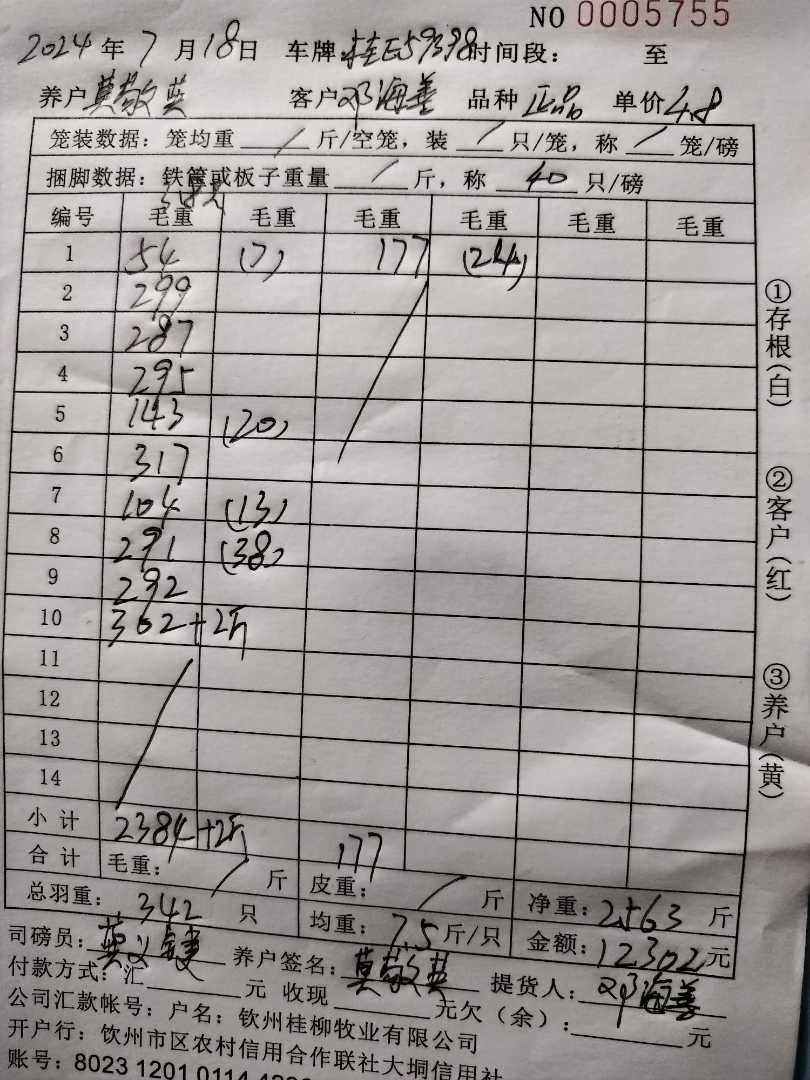 NO 0005755
2024 年 7 月 18 日 车牌:桂E59398 时间段: 至
养户 莫敬英 客户 邓海善 品种 正品 单价 4.8
笼装数据: 笼均重 / 斤/空笼, 装 / 只/笼, 称 / 笼/磅
捆脚数据: 铁筐或板子重量 / 斤, 称 40 只/磅
编号 毛重 毛重 毛重 毛重 毛重 毛重
1 54 (7) 177 (24)
2 299
3 287
4 295
5 143 (20)
6 317
7 104 (13)
8 291 (38)
9 292
10 302+2斤
11
12
13
14
小计 2384+2斤 177
合计 毛重: / 斤 皮重: / 斤 净重: 2563 斤
总羽重: 342 只 均重: 7.5 斤/只 金额: 12302 元
司磅员: 养户签名: 莫敬英 提货人: 邓海善
付款方式: 汇 元 收现 元欠(余): 元
公司汇款帐号: 户名: 钦州桂柳牧业有限公司
开户行: 钦州市区农村信用合作联社大垌信用社
账号: 8023 1201 0114
①存根(白)
②客户(红)
③养户(黄)